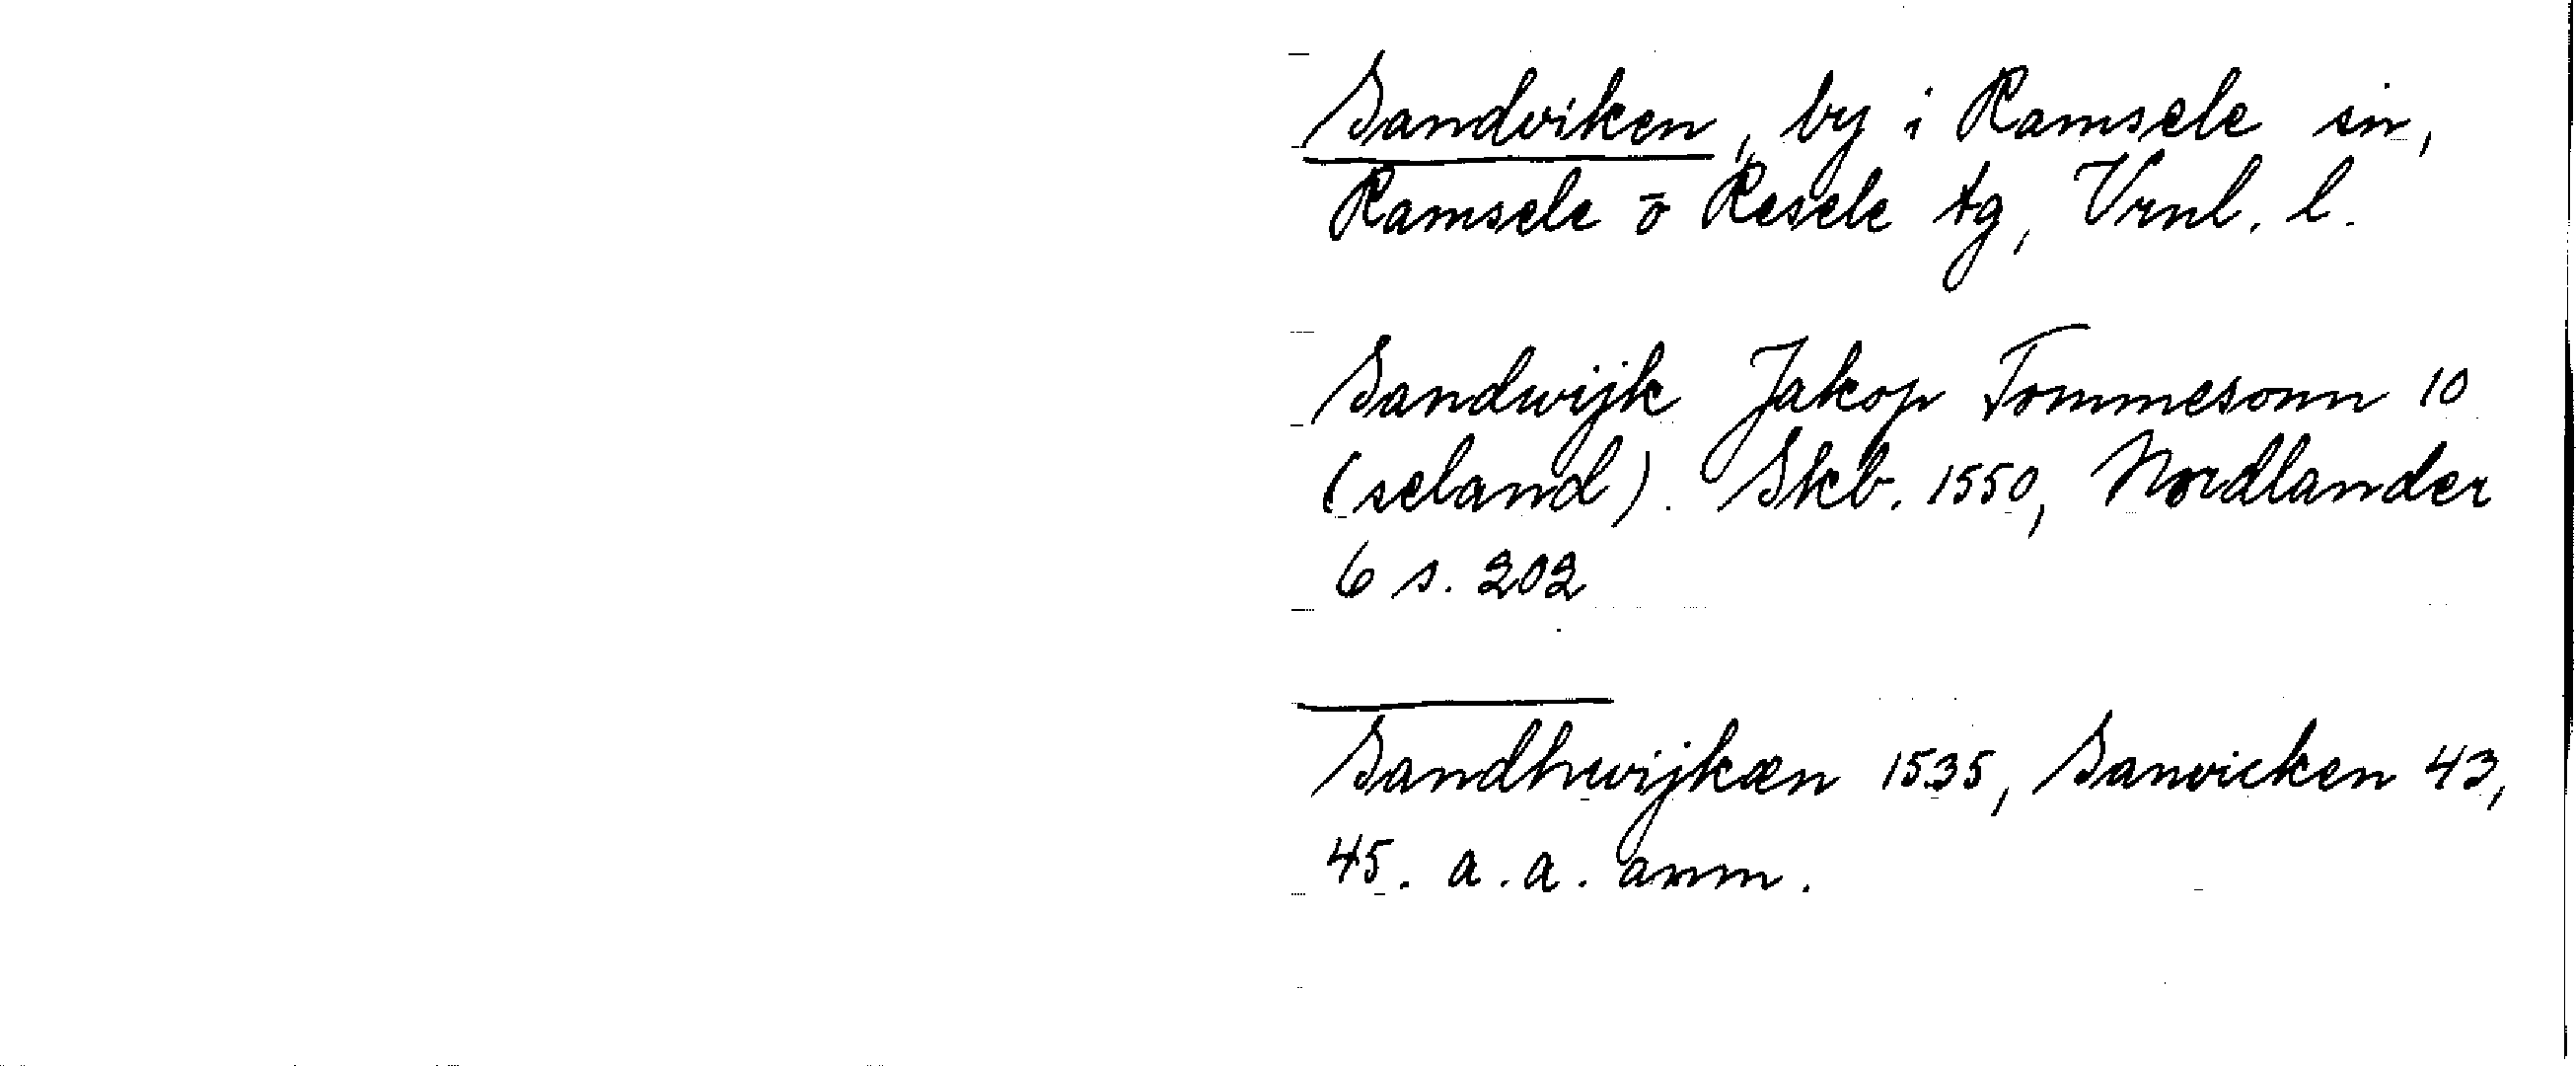 Sandviken, by i Ramsele sn,
Ramsele o Resele tg, Vrnl. l.
Sandwijk Jakop Tommesonn 10
(seland). Skb. 1550, Nordlander
6 s. 202
Sandhwijkæn 1535, Sanvicken 43,
45. a. a. anm.